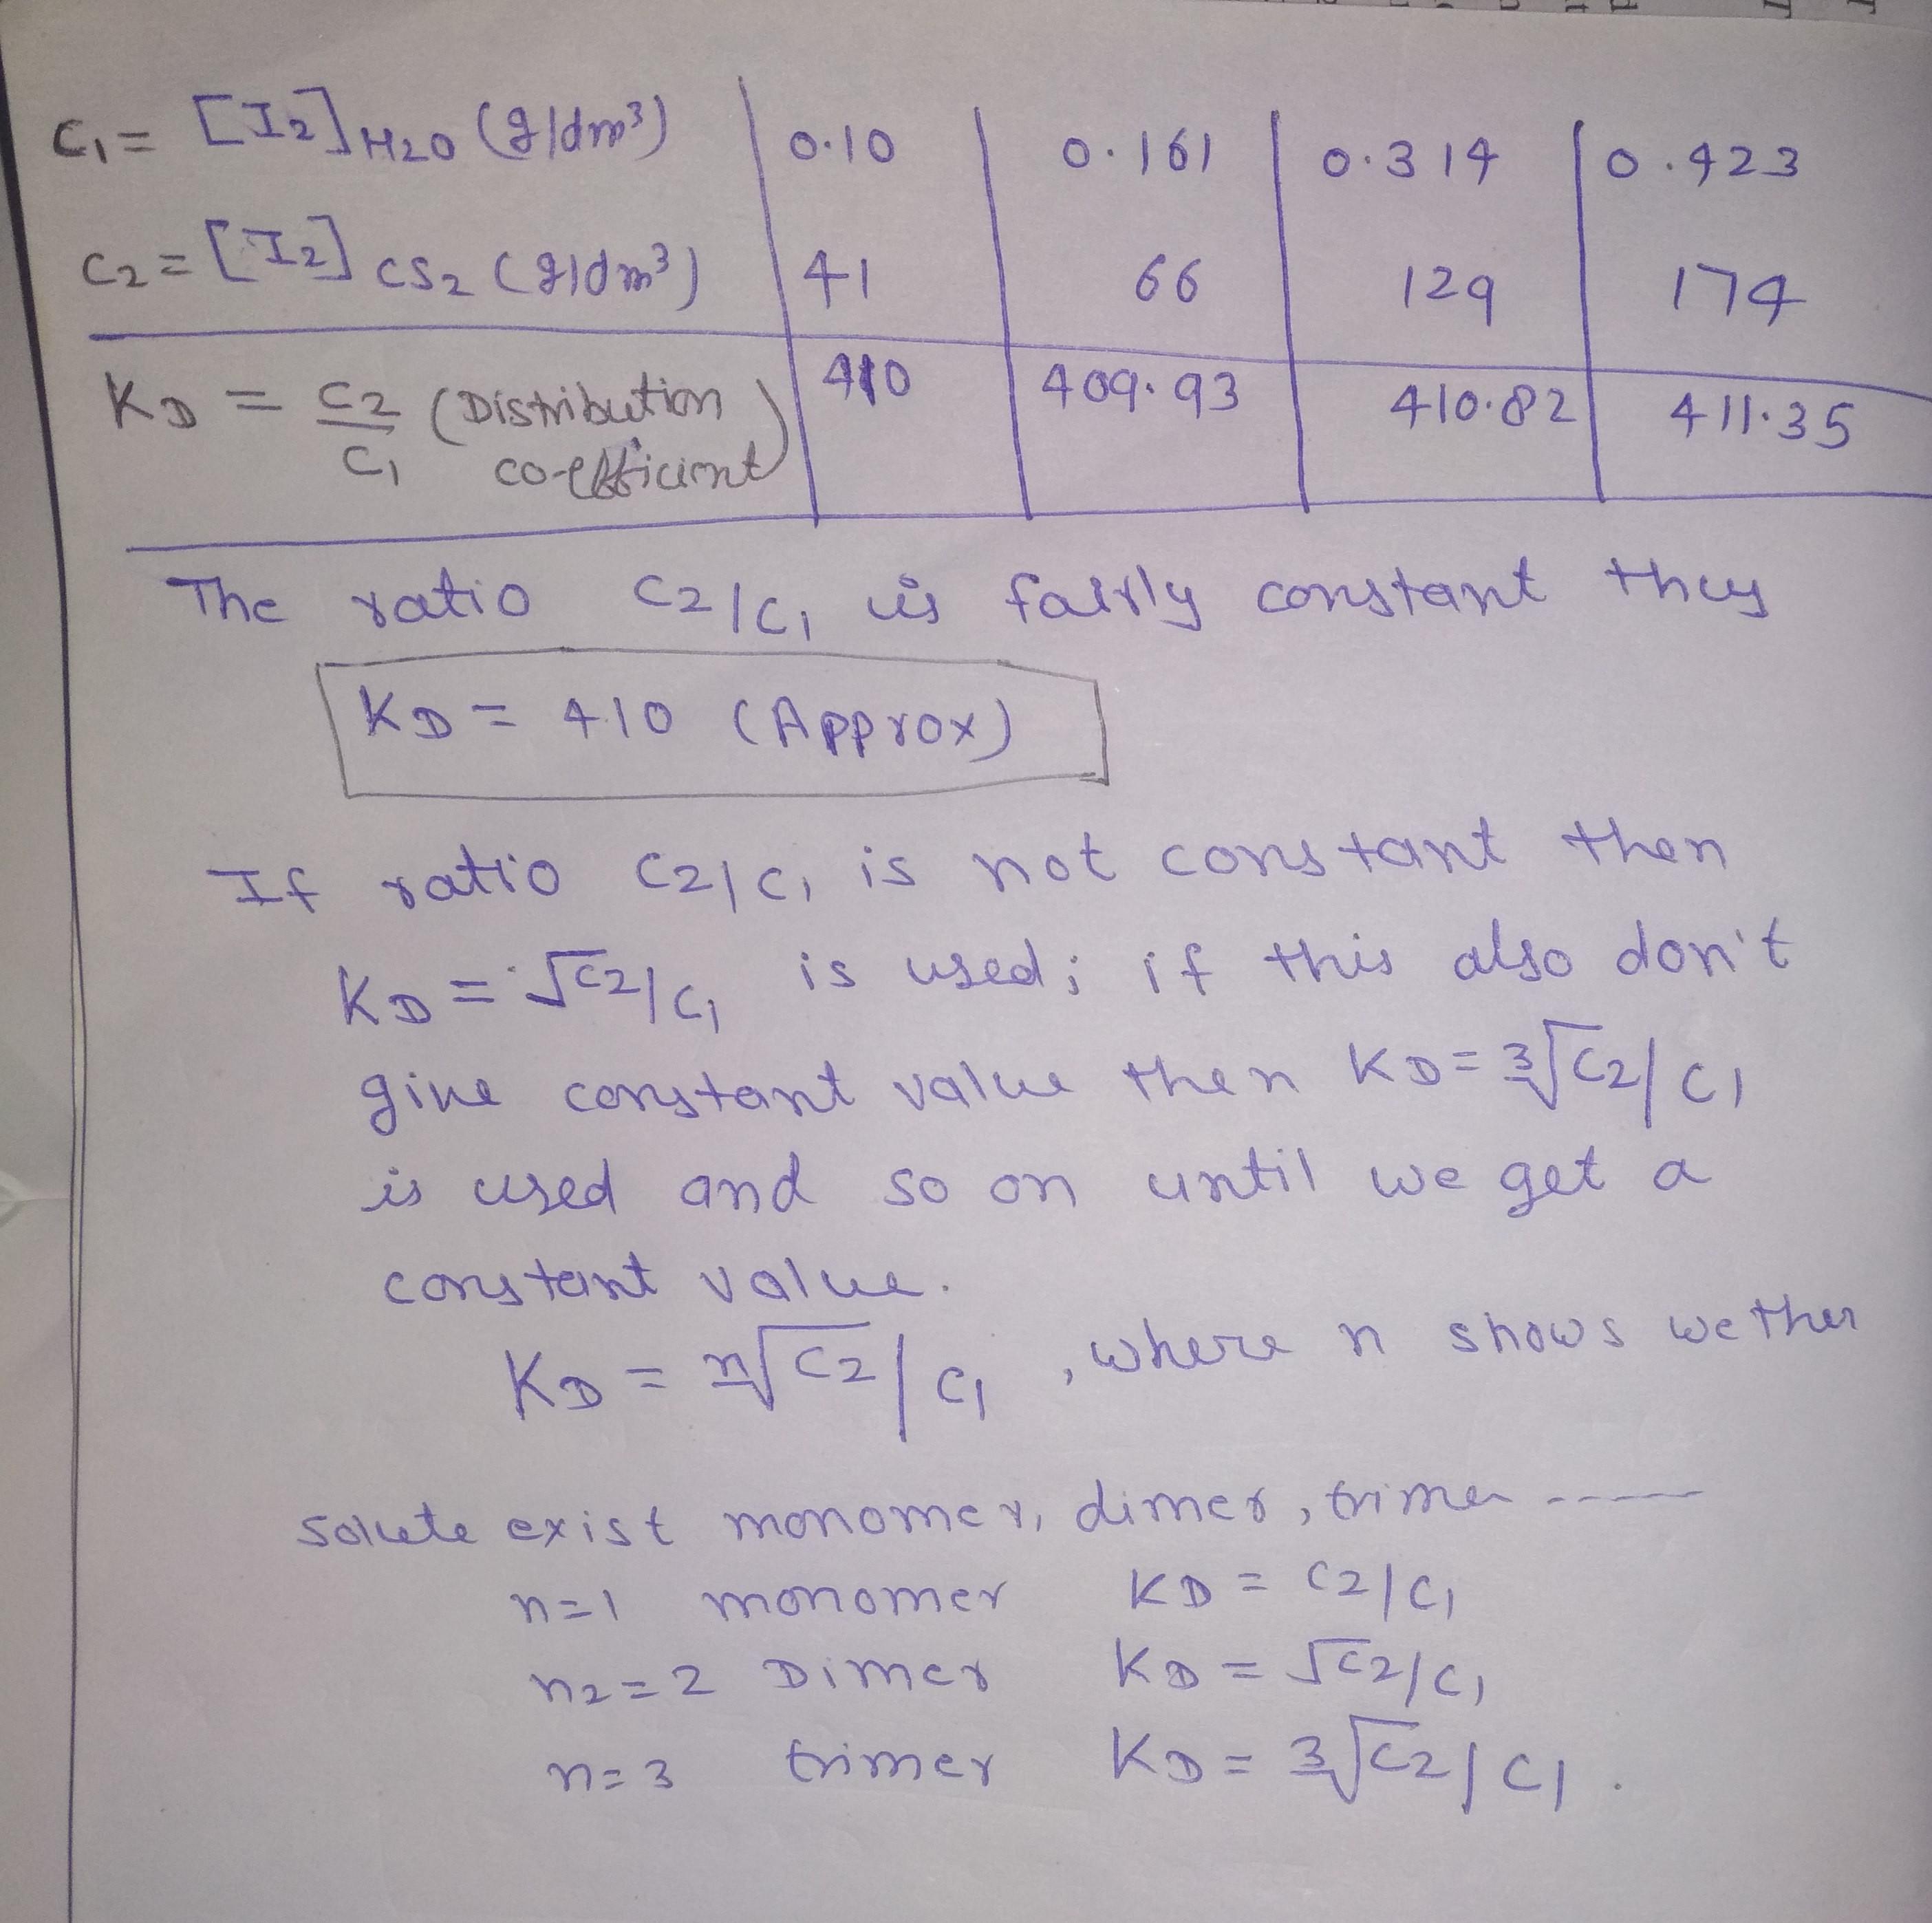 C₁ = [I₂]H₂O (g/dm³) | 0.10 | 0.161 | 0.314 | 0.423
C₂ = [I₂]CS₂ (g/dm³) | 41 | 66 | 129 | 174
K_D = C₂/C₁ (Distribution co-efficient) | 410 | 409.93 | 410.82 | 411.35
The ratio C₂/C₁ is fairly constant thus
K_D = 410 (Approx)
If ratio C₂/C₁ is not constant then
K_D = √C₂/C₁ is used; if this also don't
give constant value then K_D = ³√C₂/C₁
is used and so on until we get a
constant value.
K_D = ⁿ√C₂/C₁, where n shows wether
solute exist monomer, dimer, trimer -----
n=1 monomer K_D = C₂/C₁
n₂=2 Dimer K_D = √C₂/C₁
n=3 trimer K_D = ³√C₂/C₁.